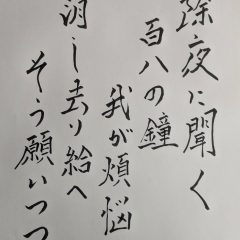 除夜に聞く
百八の鐘
我が煩悩
消し去り給へ
そう願いつつ